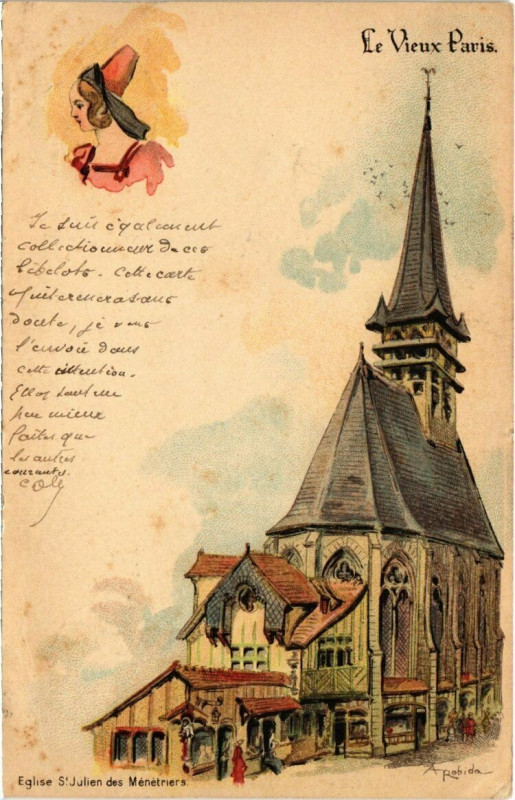 Le Vieux Paris.
Je suis également
collectionneur de ces
bibelots - cette carte
sans
doute, je vous
l'envoie dans
cette intention.
Elles sont un
peu mieux
faites que
les autres
courantes.
A Robida
Eglise St Julien des Ménétriers.